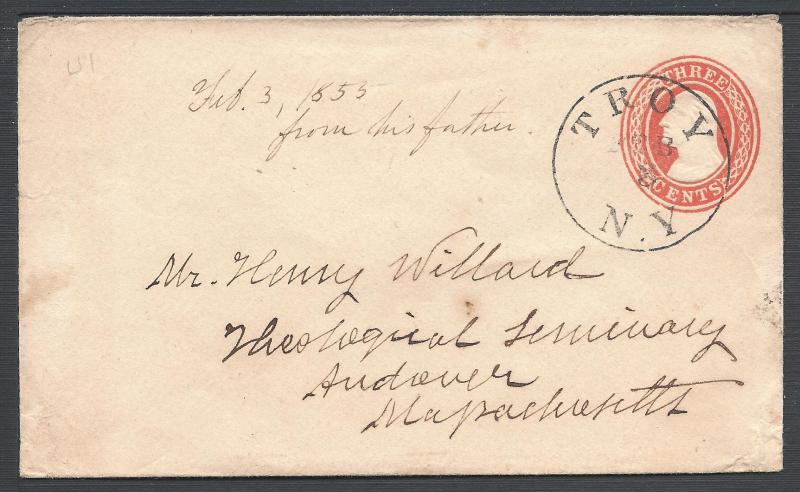 U1
Feb. 3, 1855
from his father.
THREE
CENTS
TROY
FEB
3
N.Y
Mr. Henry Willard
Theological Seminary
Andover
Massachusetts